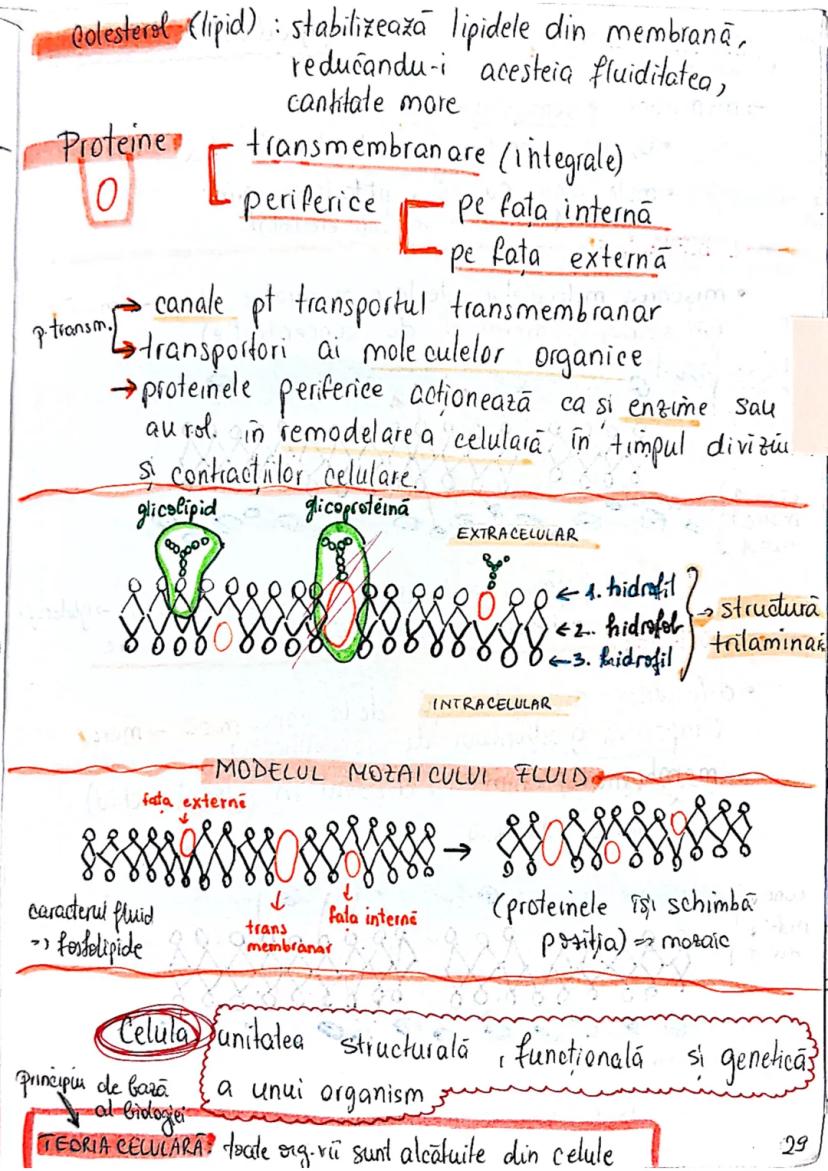 Colesterol (lipid) : stabilizează lipidele din membrană,
reducându-i acesteia fluiditatea,
cantitate mare
Proteine
transmembranare (integrale)
periferice
pe fața internă
pe fața externă
p. transm.
→ canale pt transportul transmembranar
→ transportori ai moleculelor organice
→ proteinele periferice acționează ca și enzime sau
au rol în remodelarea celulară în timpul diviziu
și contracțiilor celulare.
glicolipid
glicoproteină
EXTRACELULAR
← 1. hidrofil
← 2. hidrofob
← 3. hidrofil
→ structură
trilaminar
INTRACELULAR
MODELUL MOZAICULUI FLUID
fața externă
caracterul fluid
=> fosfolipide
trans
membranar
fața internă
(proteinele își schimbă
poziția) => mozaic
Celula unitatea structurală, funcțională și genetică
a unui organism
principiu de bază
al biologiei
TEORIA CELULARĂ: toate org-vii sunt alcătuite din celule
29